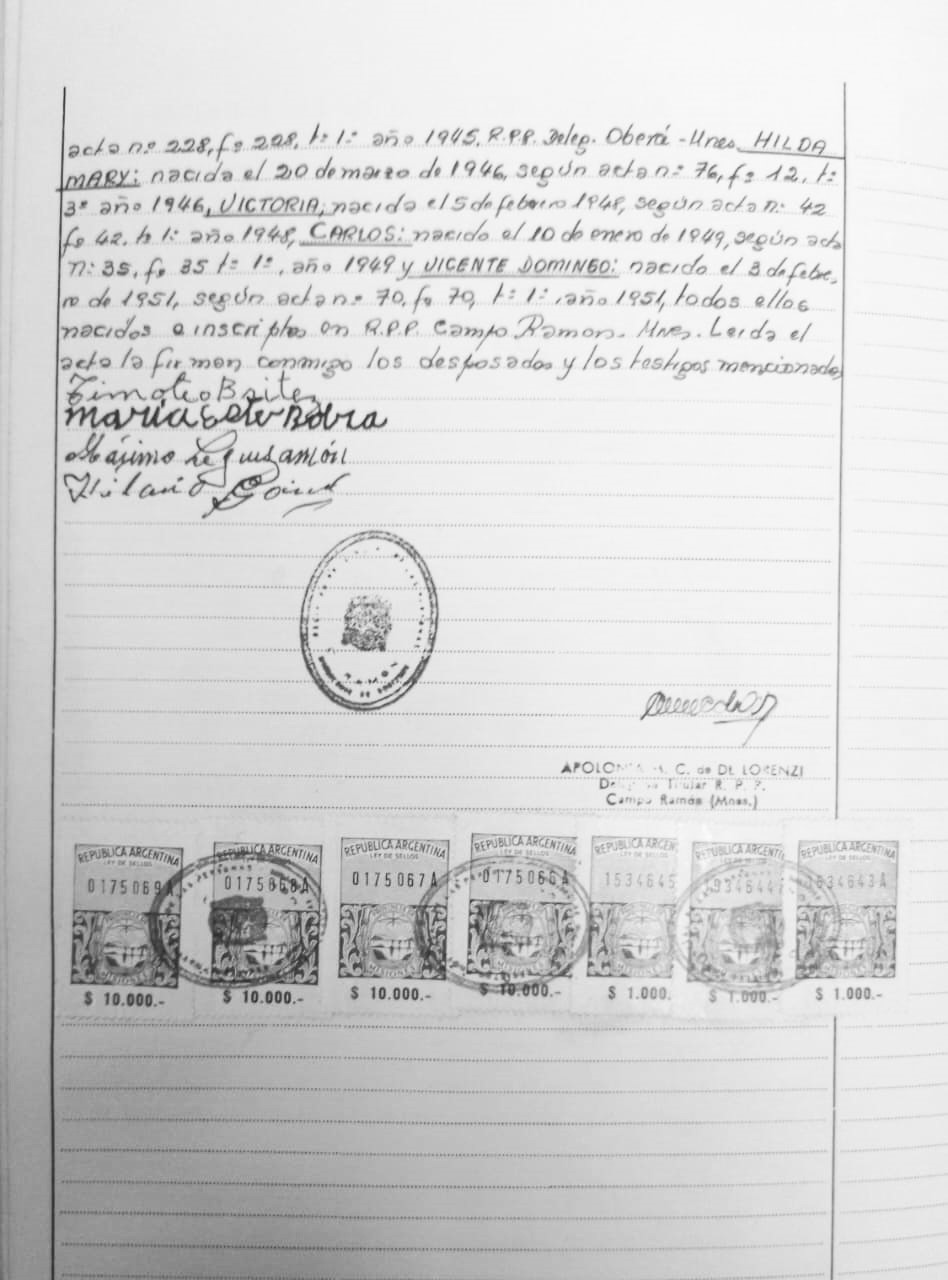 acta nº 228, fº 228, tº 1º año 1945. R.P.P. Deleg. Oberá - Mnes, HILDA
MARY: nacida el 20 de marzo de 1946, según acta nº 76, fº 12, tº
3º año 1946, VICTORIA; nacida el 5 de febrero 1948, según acta nº 42
fº 42, tº 1º año 1948, CARLOS: nacido el 10 de enero de 1949, según acta
nº 35, fº 35 tº 1º, año 1949 y VICENTE DOMINGO: nacido el 3 de febre,
ro de 1951, según acta nº 70, fº 70, tº 1º, año 1951, todos ellos
nacidos e inscriptos en R.P.P. Campo Ramon. Mnes. Leida el
acta la firman conmigo los desposados y los testigos mencionados,
Timoteo Britez
maria
Máximo Leguisamón
Hilario
APOLON C. de DE LORENZI
Titular R. P. P.
Campo Ramón (Mnes.)
REPUBLICA ARGENTINA REPUBLICA ARGENTINA REPUBLICA ARGENTINA REPUBLICA ARGENTINA REPUBLICA ARGENTINA REPUBLICA ARGENTINA REPUBLICA ARGENTINA
LEY DE SELLOS LEY DE SELLOS LEY DE SELLOS LEY DE SELLOS LEY DE SELLOS LEY DE SELLOS LEY DE SELLOS
0175069A 0175068A 0175067A 0175066A 1534645 534643A
MISIONES
$ 10.000.- $ 10.000.- $ 10.000.- $ 10.000.- $ 1.000. $ 1.000.- $ 1.000.-